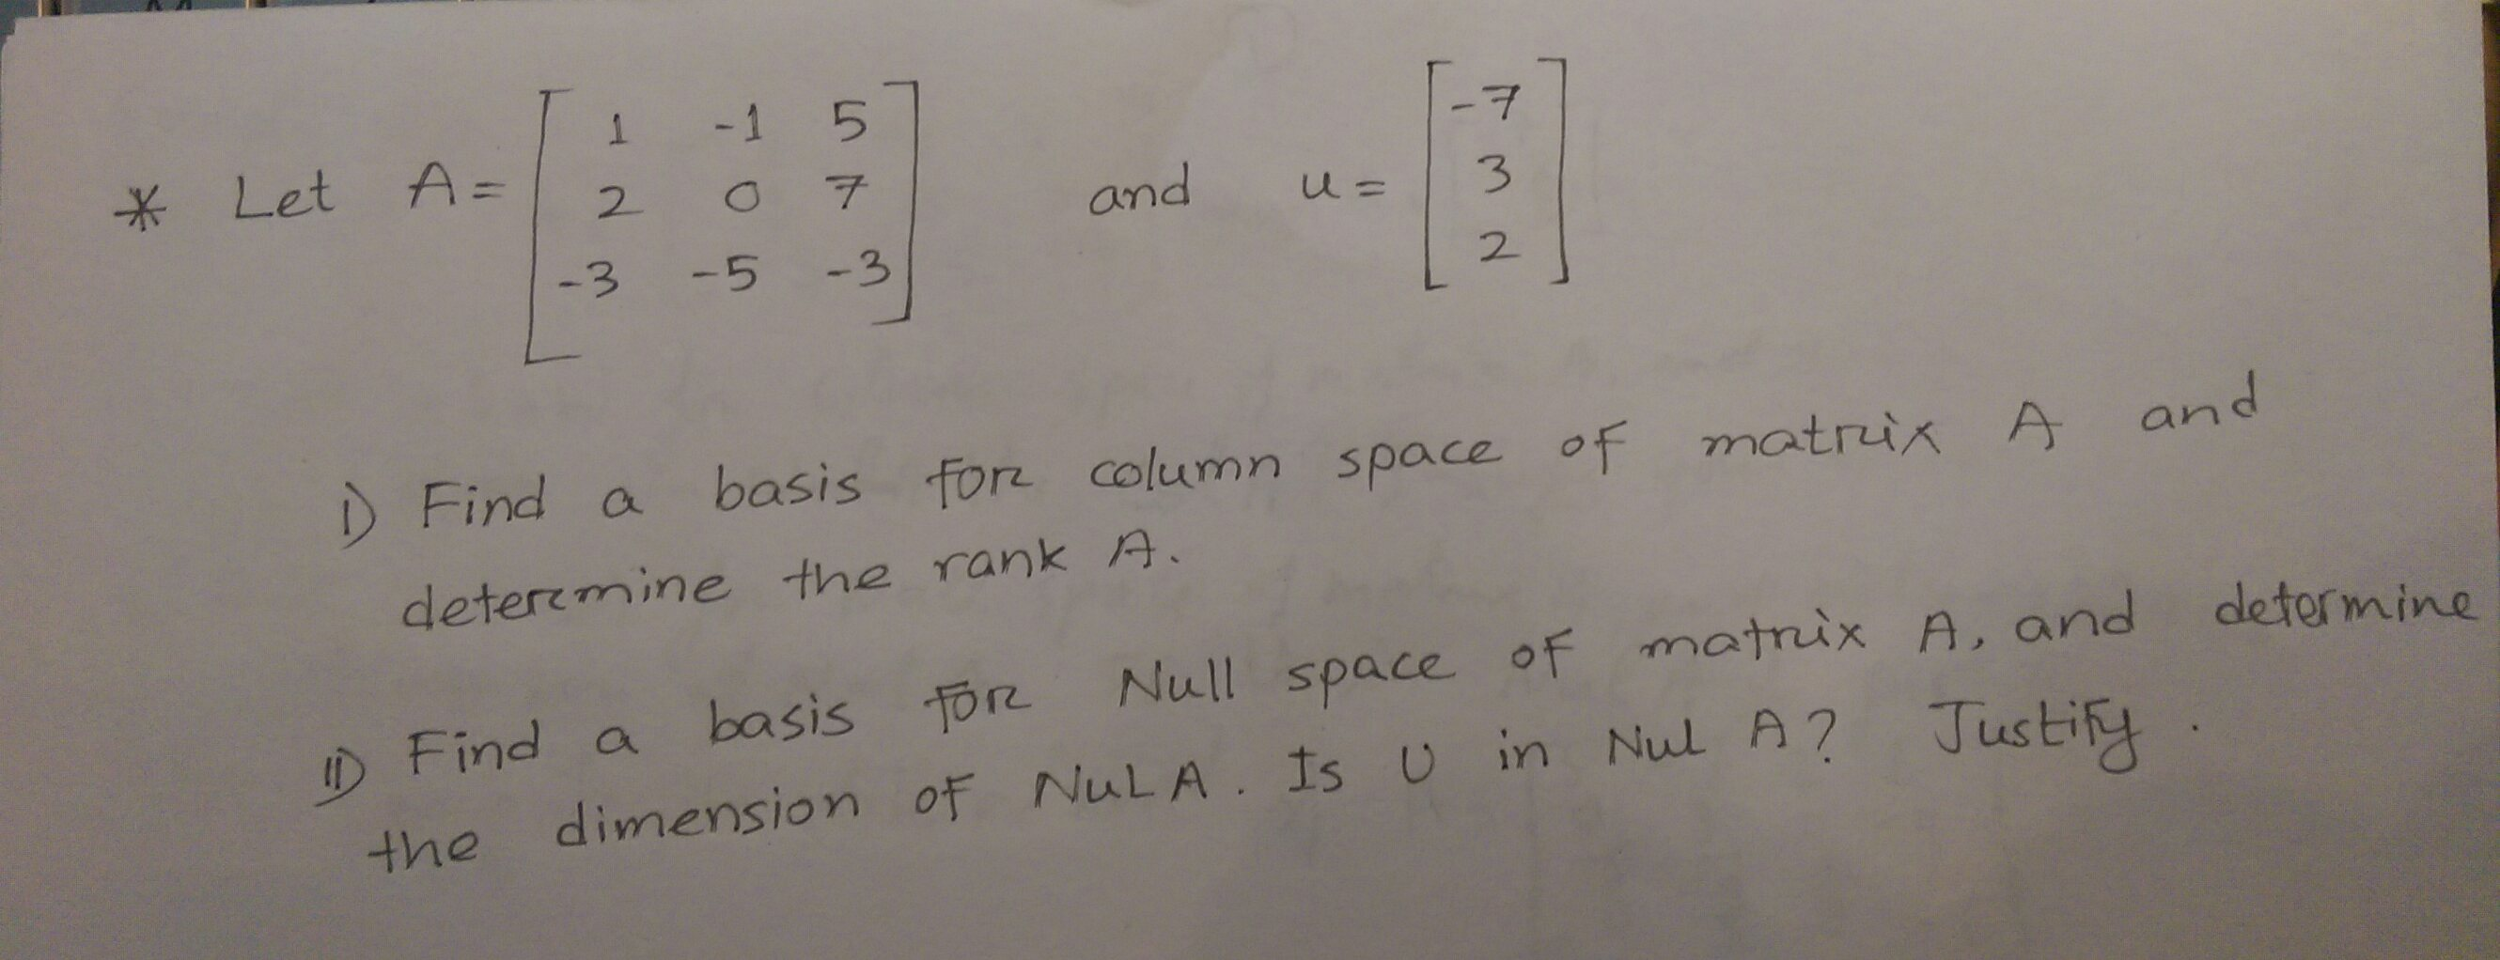 * Let A = [ 1 -1 5 ; 2 0 7 ; -3 -5 -3 ] and u = [ -7 ; 3 ; 2 ]
i) Find a basis for column space of matrix A and
determine the rank A.
ii) Find a basis for Null space of matrix A, and determine
the dimension of NuLA. Is U in Nul A? Justify.